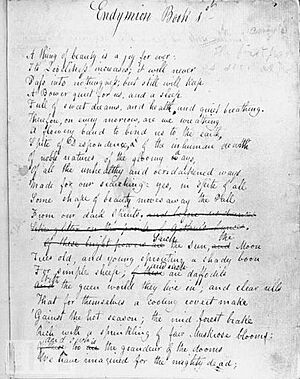 Endymion Book 1st
A thing of beauty is a joy for ever:
Its Loveliness increases; it will never
Pass into nothingness; but still will keep
A Bower quiet for us, and a sleep
Full of sweet dreams, and health, and quiet breathing.
Therefore, on every morrow, are we wreathing
A flowery band to bind us to the earth,
Spite of Despondence, of the inhuman dearth
Of noble natures, of the gloomy days,
Of all the unhealthy and o'erdarkened ways
Made for our searching: yes, in spite of all
Some shape of beauty moves away the Pall
From our dark Spirits.
of these bright
Such the Sun, the Moon
Trees old, and young sprouting a shady boon
For simple sheep; and such are daffodils
With the green world they live in; and clear rills
That for themselves a cooling covert make
Gainst the hot season; the mid forest brake
Rich with a sprinkling of fair Muskrose blooms:
And such too is the grandeur of the dooms
We have imagined for the mighty dead;